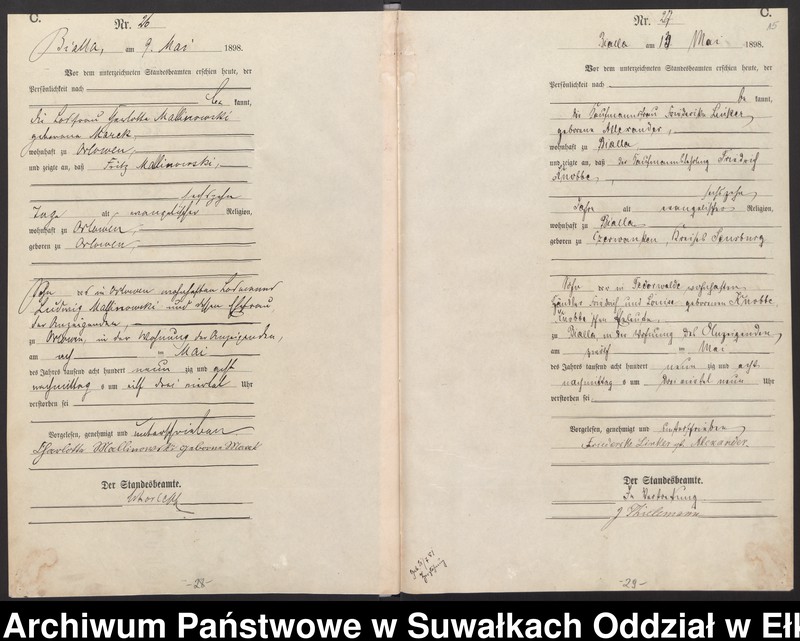 C.
Nr. 26
Bialla, am 9. Mai 1898.
Vor dem unterzeichneten Standesbeamten erschien heute, der
Persönlichkeit nach
be kannt,
die Losfrau Charlotte Mallinowski
geborene Marek,
wohnhaft zu Orlowen,
und zeigte an, daß Fritz Mallinowski,
sechszehn
Tage alt, evangelischer Religion,
wohnhaft zu Orlowen,
geboren zu Orlowen,
Sohn des in Orlowen wohnhaften Losmanns
Ludwig Mallinowski und dessen Ehefrau
der Anzeigenden,
zu Orlowen, in der Wohnung der Anzeigenden,
am acht ten Mai
des Jahres tausend acht hundert neun zig und acht
nachmittag s um elf drei viertel Uhr
verstorben sei
Vorgelesen, genehmigt und unterschrieben
Charlotte Mallinowski geborene Marek
Der Standesbeamte.
-28-
C.
15
Nr. 27
Bialla am 13 Mai 1898.
Vor dem unterzeichneten Standesbeamten erschien heute, der
Persönlichkeit nach
be kannt,
die Kaufmannsfrau Friederike Linker,
geborene Alexander,
wohnhaft zu Bialla
und zeigte an, daß der Kaufmannslehrling Friedrich
Knobbe,
sechszehn
Jahre alt, evangelischer Religion,
wohnhaft zu Bialla
geboren zu Czerwanken, Kreises Sensburg
Sohn der in wohnhaften
Händler Friedrich und Louise geborenen Knobbe,
Knobbe'schen Eheleute,
zu Bialla, in der Wohnung des Anzeigenden,
am zwölf ten Mai
des Jahres tausend acht hundert neun zig und acht
nachmittag s um drei viertel neun Uhr
verstorben sei
Vorgelesen, genehmigt und unterschrieben
Friederike Linker geb. Alexander.
Der Standesbeamte.
In Vertretung
Thielemann
-29-
Archiwum Państwowe w Suwałkach Oddział w Eł